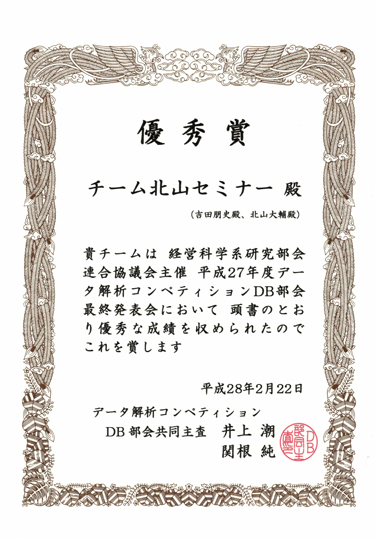 優秀賞
チーム北山セミナー 殿
(吉田朋史殿、北山大輔殿)
貴チームは 経営科学系研究部会
連合協議会主催 平成27年度デー
タ解析コンペティションDB部会
最終発表会において 頭書のとお
り優秀な成績を収められたので
これを賞します
平成28年2月22日
データ解析コンペティション
DB部会共同主査 井上 潮
関根 純